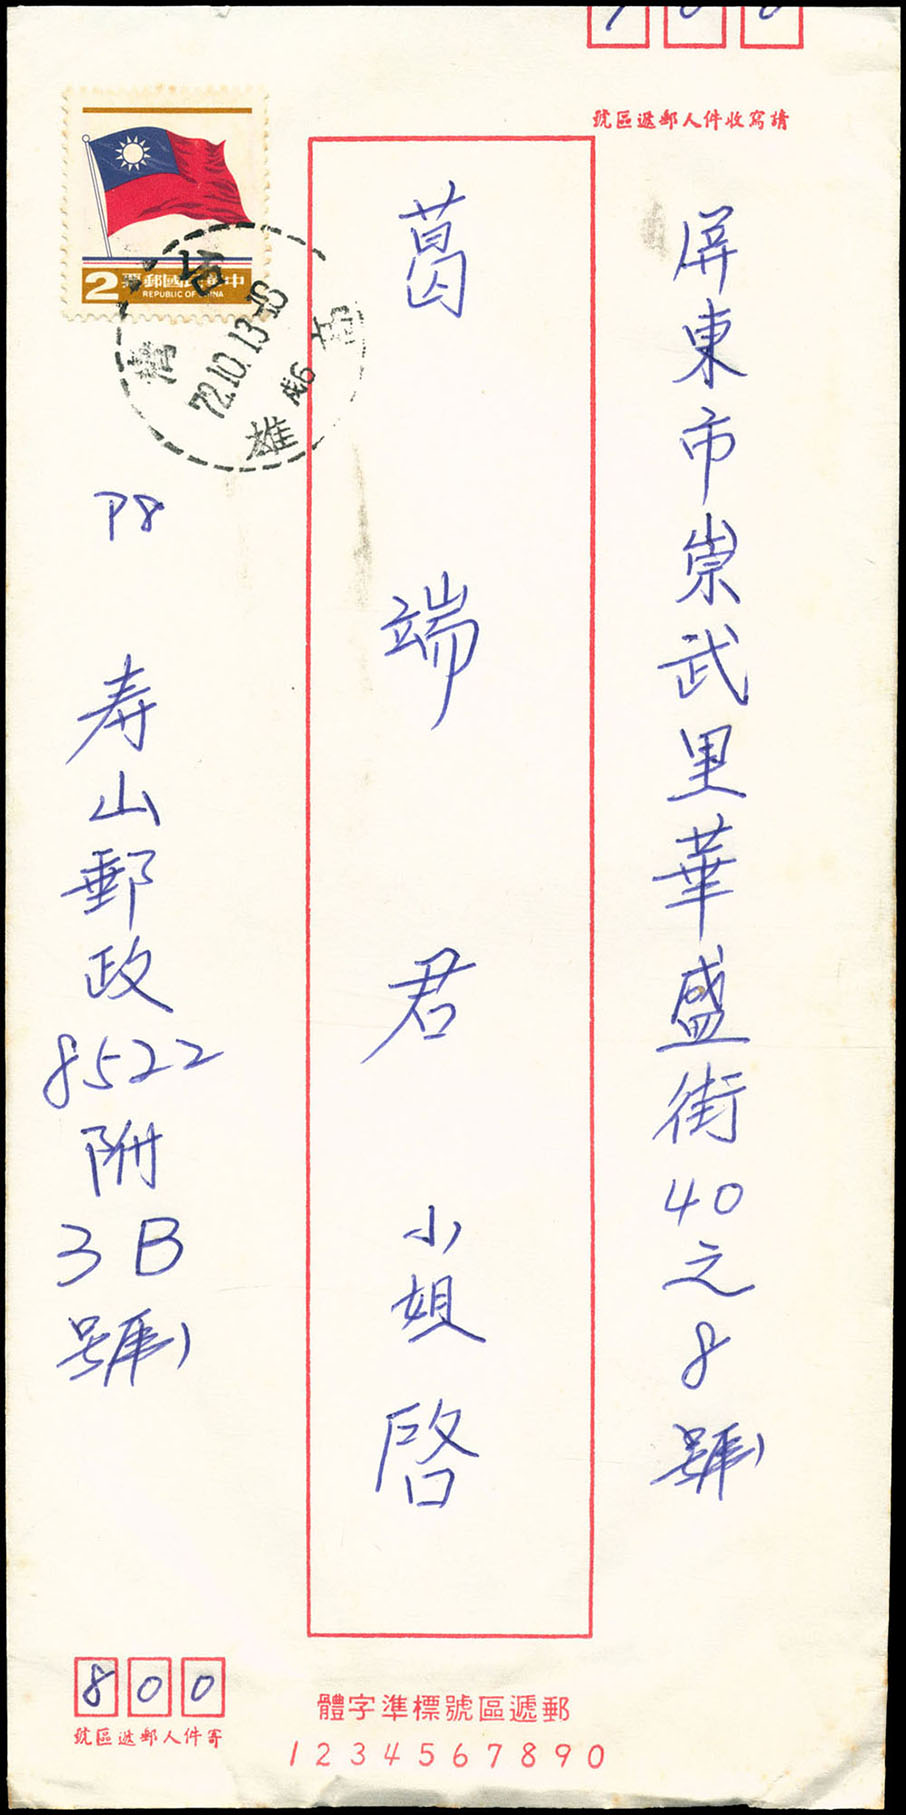 900
請寫收件人郵遞區號
屏東市崇武里華盛街40之8號
葛端君小姐啓
中華民國郵票
2
REPUBLIC OF CHINA
台
高雄
72.10.13-16
P8
寿山郵政8522附3B號
800
寄件人郵遞區號
郵遞區號標準字體
1234567890